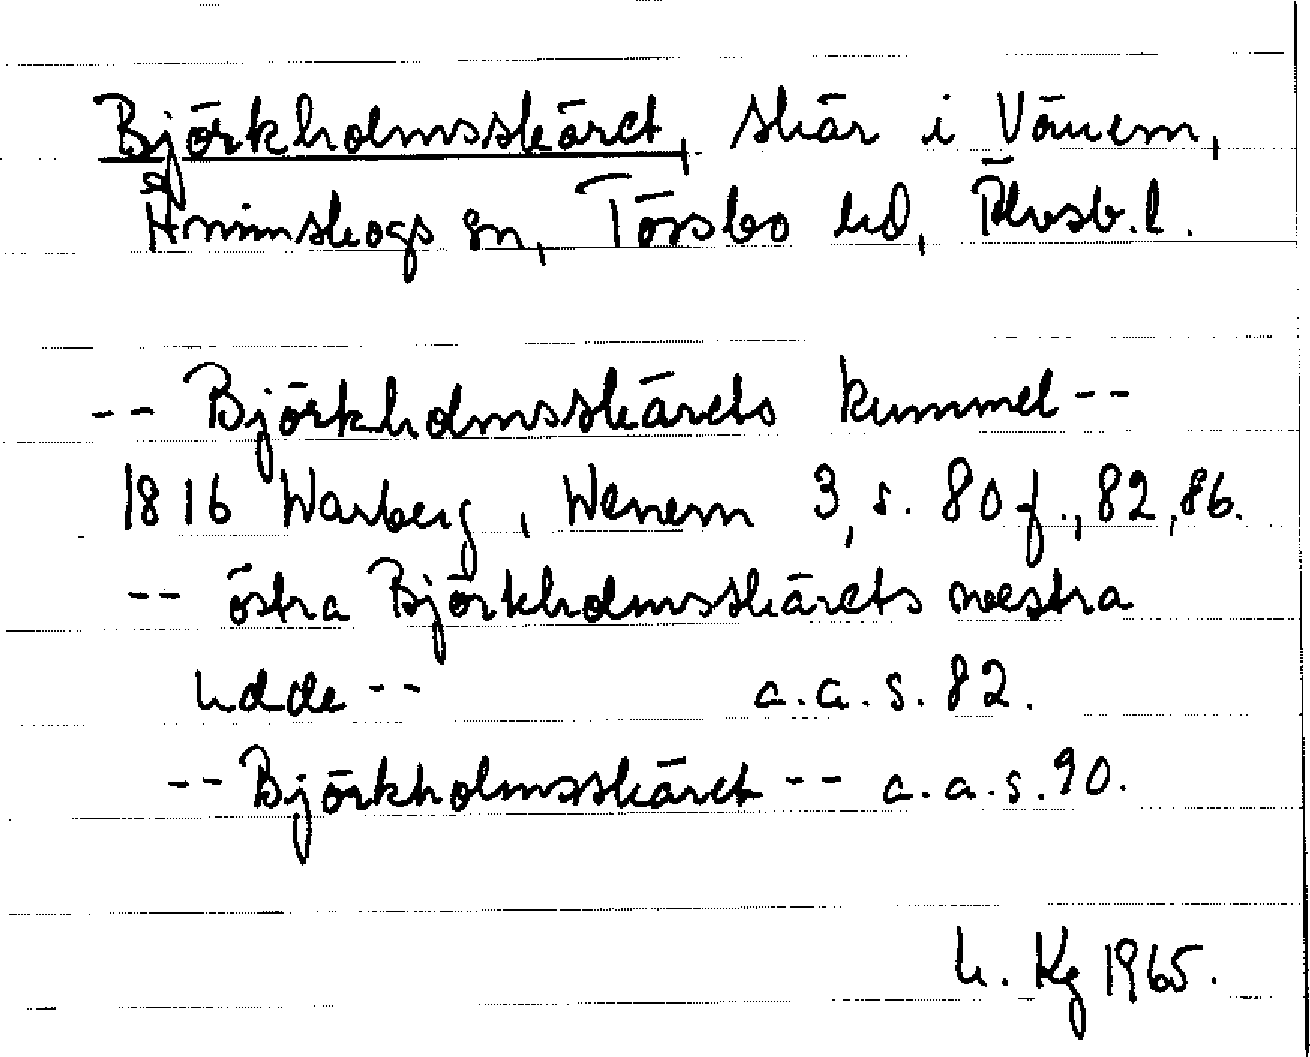 Björkholmsskäret, skär i Vänern,
Ånimskogs sn, Tössbo hd, Älvsb. l.
-- Björkholmsskärets kummel --
1816 Warberg, Wenern 3, s. 80 f., 82, 86.
-- östra Björkholmsskärets westra
udde -- a.a. s. 82.
-- Björkholmsskäret -- a.a. s. 90.
Kg 1965.